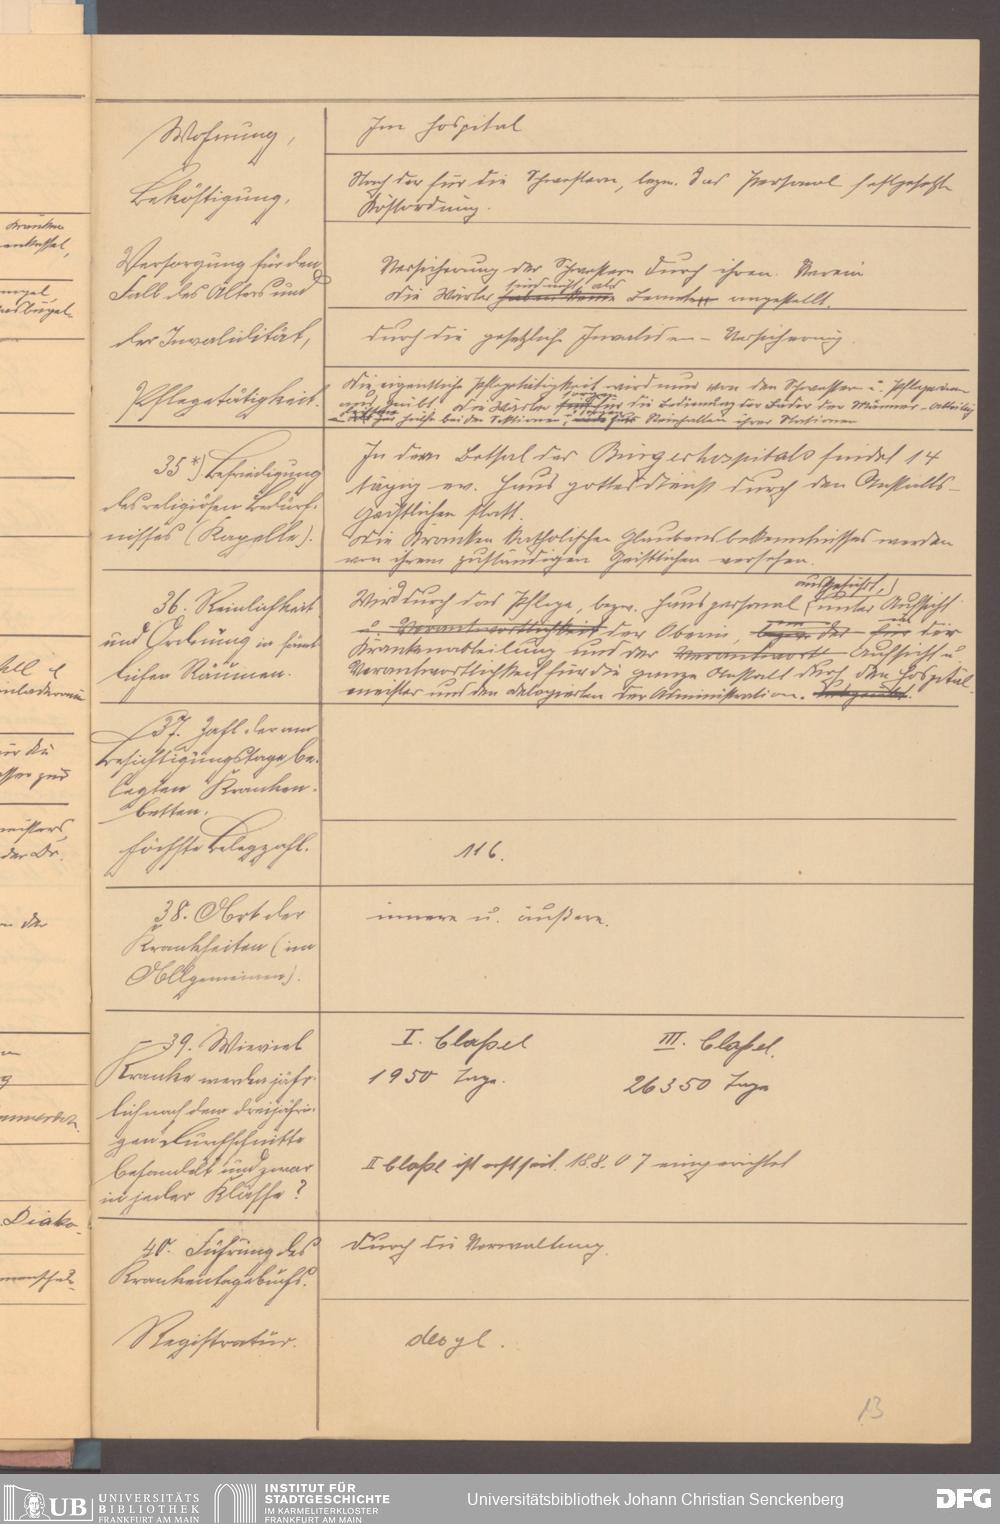 Wohnung,
Im Hospital
Beköstigung,
Nach der für die Schwestern, bezw. das Personal festgesetzte
Kostordnung.
Versorgung für den
Fall des Alters und
Versicherung der Schwestern durch ihren Verein
sind nicht als
Die Wärter haben keine Beamten angestellt.
der Invalidität,
durch die gesetzliche Invaliden-Versicherung.
Pflegetätigkeit.
Die eigentliche Pflegetätigkeit wird nur von den Schwestern u. Pflegerinnen
ausgeübt. Die Wärter für die Bedienung der Bäder der Männer-Abteilung
bei den Sektionen, ihrer Stationen
35 *) Befriedigung
des religiösen Bedürf-
nisses (Kapelle).
In dem Betsal des Bürgerhospitals findet 14
tägig ev. Hausgottesdienst durch den Anstalts-
geistlichen statt.
Die Kranken katholischen Glaubensbekenntnisses werden
von ihrem zuständigen Geistlichen versehen.
36. Reinlichkeit
und Ordnung in sämt-
lichen Räumen.
ausgeführt,
Wird durch das Pflege, bezw. Hauspersonal (unter Aufsicht
u. Verantwortlichkeit der Oberin, bezw. der für die
Krankenabteilung und der Verantwort Aufsicht u.
Verantwortlichkeit für die ganze Anstalt durch den Hospital-
meister und den delegierten der Administration.
37. Zahl der am
Besichtigungstage be-
legten Kranken-
betten.
Höchste Belegzahl.
116.
38. Art der
Krankheiten (im
Allgemeinen).
innere u. äußere.
39. Wieviel
Kranke werden jähr-
lich nach dem dreijähri-
gen Durchschnitte
behandelt und zwar
in jeder Klasse?
I. Claße
III. Claße.
1950 Tage.
26350 Tage
II Claße ist erst seit 18.8.07 eingerichtet
40. Führung des
Krankentagebuchs.
Durch die Verwaltung.
Registratur.
desgl.
13
UB UNIVERSITÄTS
BIBLIOTHEK
FRANKFURT AM MAIN
INSTITUT FÜR
STADTGESCHICHTE
IM KARMELITERKLOSTER
FRANKFURT AM MAIN
Universitätsbibliothek Johann Christian Senckenberg
DFG